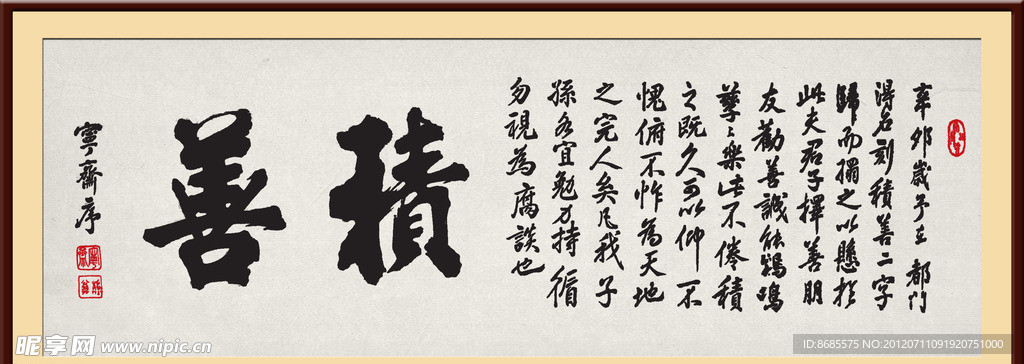 辛卯歲予在都門
得名刻積善二字
歸而搨之以懸於
此夫君子擇善朋
友勸善誠能鷄鳴
孳〻樂此不倦積
之既久可以仰不
愧俯不怍為天地
之完人矣凡我子
孫各宜勉力持循
勿視為腐談也
積善
寧齋序
昵享网 www.nipic.cn
ID:8685575 NO:20120711091920751000